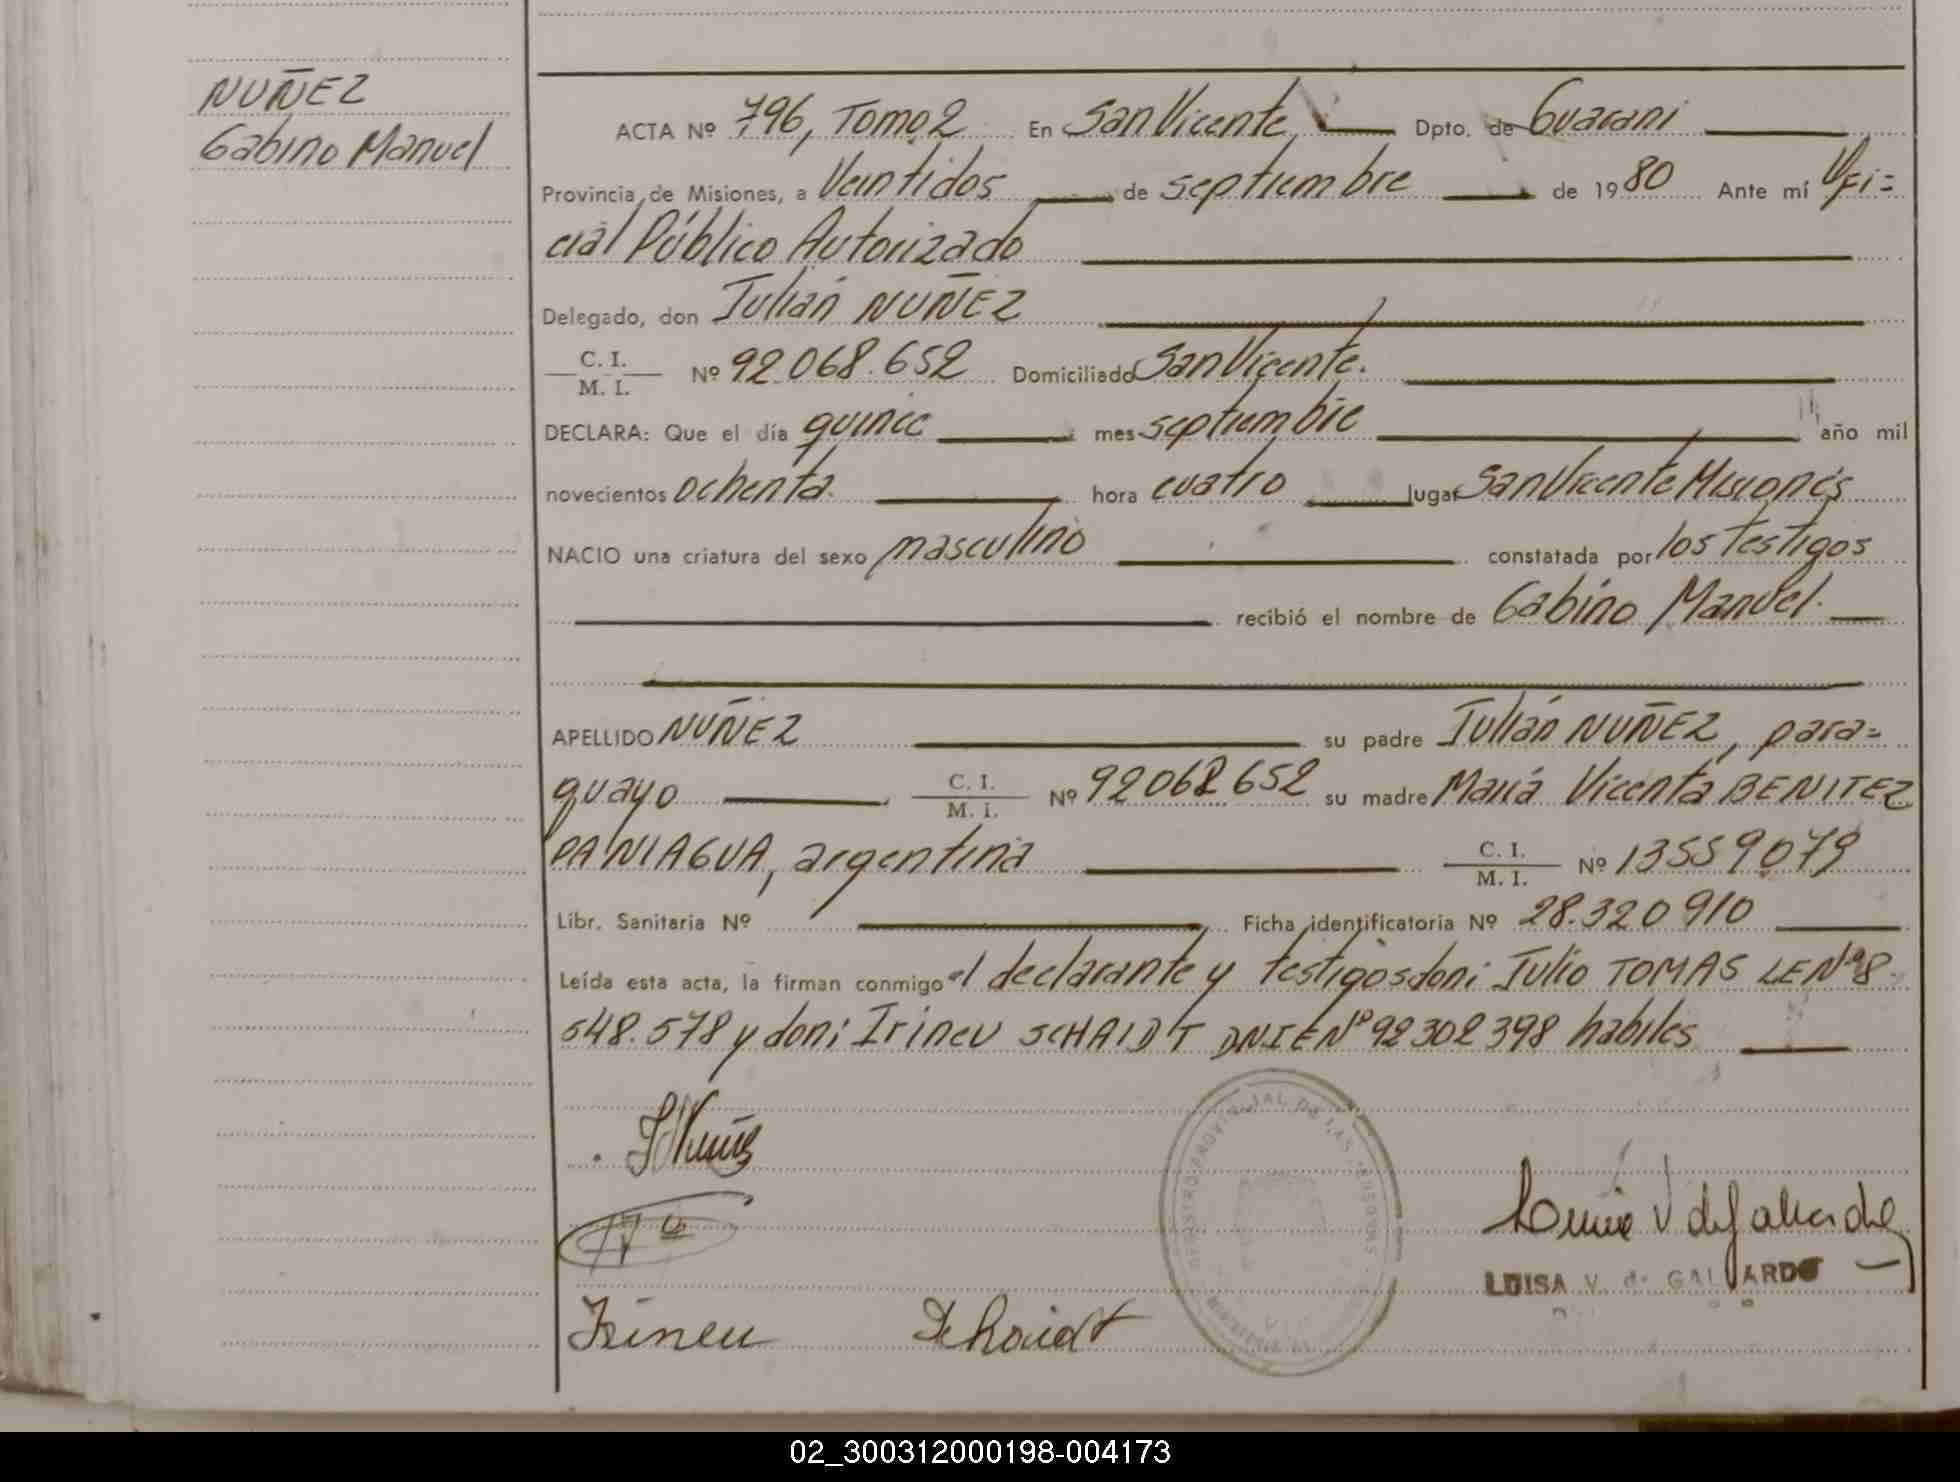 NUÑEZ
Gabino Manuel
ACTA Nº 796, Tomo 2 En San Vicente, Dpto. de Guarani
Provincia de Misiones, a Veintidos de septiembre de 1980 Ante mí Ofi=
cial Público Autorizado
Delegado, don Julián NUÑEZ
C. I.
M. I. Nº 92.068.652 Domiciliado San Vicente.
DECLARA: Que el día quince mes septiembre año mil
novecientos ochenta. hora cuatro lugar San Vicente Misiones
NACIO una criatura del sexo masculino constatada por los testigos
recibió el nombre de Gabino Manuel.
APELLIDO NUÑEZ su padre Julián NUÑEZ, para=
guayo C. I.
M. I. Nº 92068652 su madre María Vicenta BENITEZ
PANIAGUA, argentina C. I.
M. I. Nº 13559079
Libr. Sanitaria Nº Ficha identificatoria Nº 28.320910
Leída esta acta, la firman conmigo el declarante y testigos don: Julio TOMAS LE Nº 8
548.578 y don: Irineu SCHAIDT DNIE Nº 92302398 habiles
JNuñez
Irineu Schaidt
LUISA V. de GALLARDO
02_300312000198-004173